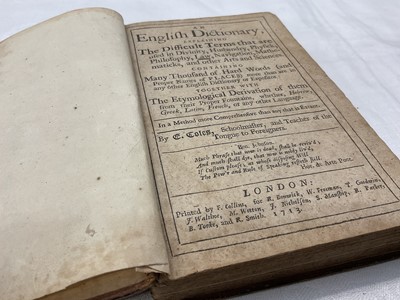 AN
English Dictionary,
EXPLAINING
The Difficult Terms that are
used in Divinity, Husbandry, Physick,
Philosophy, Law, Navigation, Mathe-
maticks, and other Arts and Sciences.
CONTAINING
Many Thousand of Hard Words (and
Proper Names of PLACES) more than are in
any other English Dictionary or Expositor:
TOGETHER WITH
The Etymological Derivation of them,
from their Proper Fountains, whether, Hebrew,
Greek, Latin, French, or any other Language.
In a Method more Comprehensive than any that is Extant.
By E. Coles, Schoolmaster, and Teacher of the
Tongue to Foreigners.
Much Phrase that now is dead, shall be reviv'd;
And much shall dye, that now is nobly liv'd,
If Custom please, at whose disposing Will
The Pow'r and Rule of Speaking resteth still.
Hor. de Arte Poet.
LONDON:
Printed by F. Collins, for R. Bonwick, W. Freeman, T. Goodwin,
J. Walthoe, M. Wotton, J. Nicholson, S. Manship, R. Parker,
B. Tooke, and R. Smith. 1713.